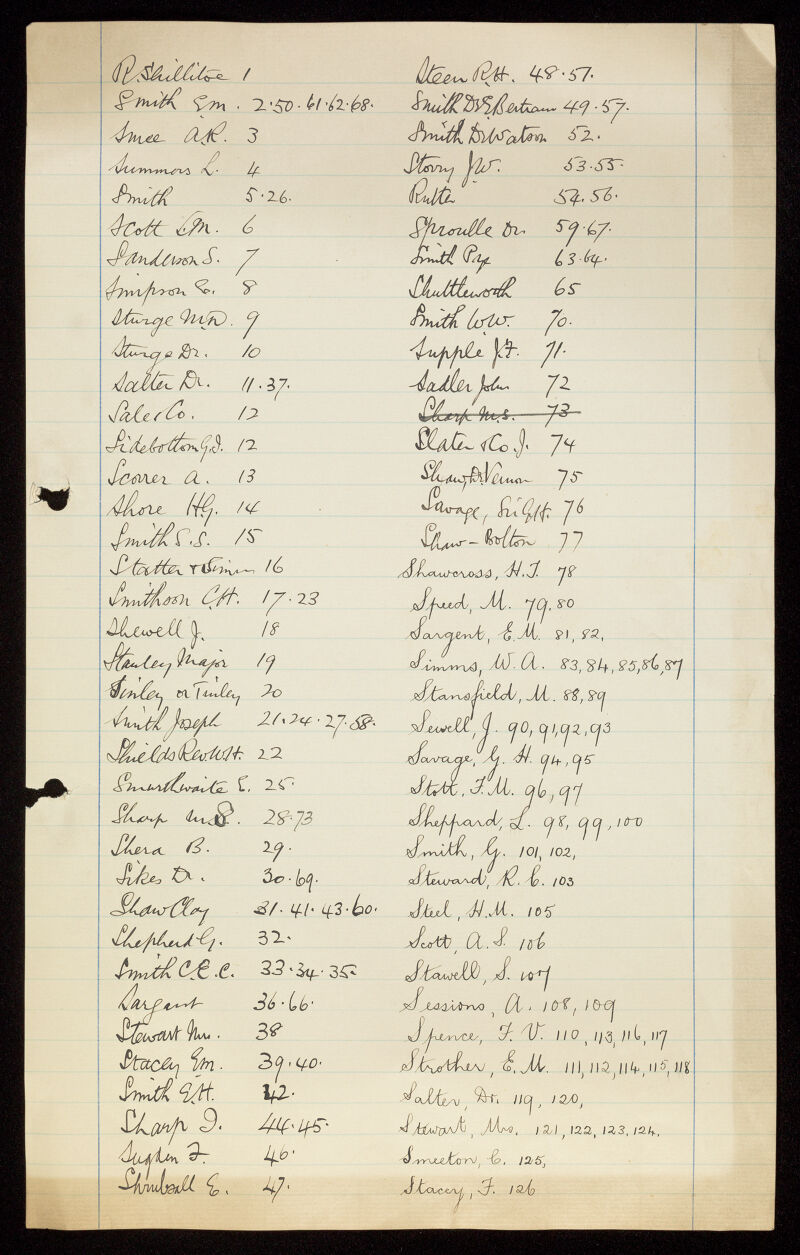 R. Shillitoe 1
Smith Em. 2.50.61.62.68.
Smee A.R. 3
Summors L. 4
Smith 5.26.
Scott S.M. 6
Sanderson S. 7
Simpson E. 8
Sturge M.D. 9
Sturge Dr. 10
Salter Dr. 11.37.
Sale & Co. 12
Sidebottom G.J. 12
Scorrer A. 13
Shore H.G. 14
Smith S.S. 15
Statter & 16
Smithson C.H. 17.23
Shewell J. 18
Stanley Major 19
Sinley or Tinley 20
Smith Joseph 21.24.27.58.
Shields Rev W.H. 22
Smurthwaite E. 25.
Sharp M.S. 28.73
Shera B. 29.
Sikes Dr. 30.69.
Shaw Clay 31.41.43.60.
Shepherd G. 32.
Smith C.E.C. 33.34.35.
Sargant 36.66.
Stewart Mrs. 38
Stacey Em. 39.40.
Smith G.H. 42.
Sharp I. 44.45.
Sugden F. 46.
Shrubsall E. 47.
Steen R.H. 48.51.
Smith Dr G Bertram 49.57.
Smith Dr Watson 52.
Storry J.W. 53.55.
Rutter 54.56.
Sproulle Dr. 59.67.
Smith Pye 63.64.
Shuttleworth 65
Smith W.W. 70.
Supple J.F. 71.
Sadler John 72
Sharp M.S. 73
Slater & Co. J. 74
Shaw, Dr. Vernon 75
Savage, Sir G.H. 76
Shaw-Bolton 77
Shawcross, H.T. 78
Speed, M. 79.80
Sargent, E.M. 81, 82,
Simms, W.A. 83, 84, 85, 86, 87
Stansfield, M. 88, 89
Sewell, J. 90, 91, 92, 93
Savage, G.H. 94, 95
Stott, F.M. 96, 97
Sheppard, L. 98, 99, 100
Smith, G. 101, 102,
Steward, R.C. 103
Steel, H.M. 105
Scott, A.S. 106
Stawell, S. 107
Sessions, A. 108, 109
Spence, F.V. 110, 113, 116, 117
Strother, E.M. 111, 112, 114, 115, 118
Salter, Dr. 119, 120,
Stewart, Mrs. 121, 122, 123, 124.
Smeeton, C. 125,
Stacey, F. 126